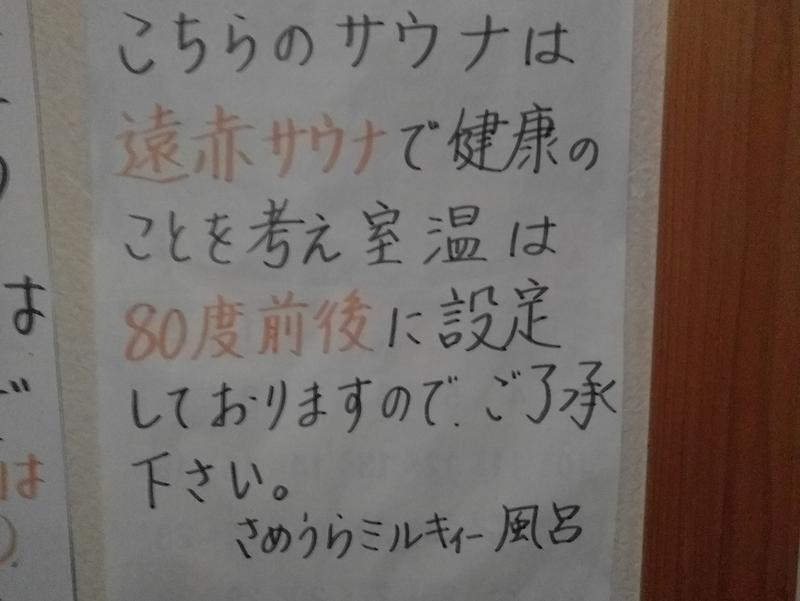 こちらのサウナは
遠赤サウナで健康の
ことを考え室温は
80度前後に設定
しておりますので、ご了承
下さい。
さめうらミルキィー風呂
は
は